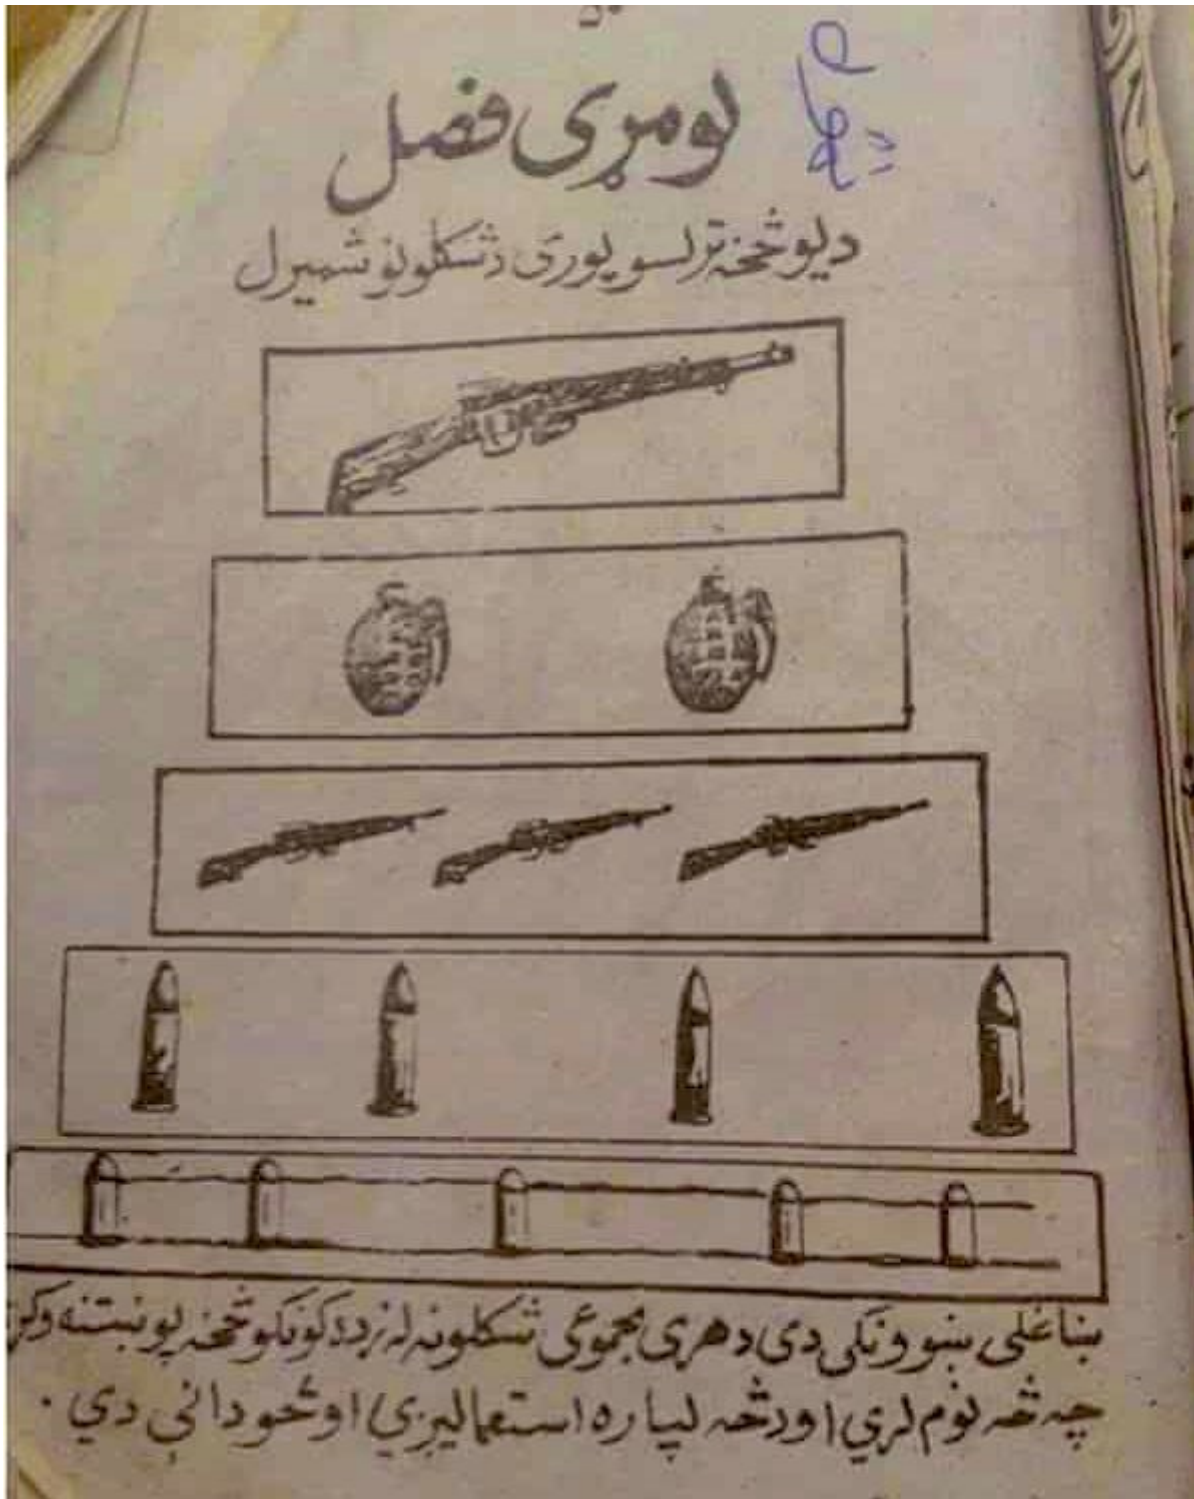 لومړی فصل
دیوڅخه ترلسو پوری دشکلونو شمیرل
ښاغلی ښوونکی دی دهری مجموعی شکلونه له زده کونکو څخه پوښتنه وکړ
چه څه نوم لری اودڅه لپاره استعمالیږی اوڅو دانی دی .